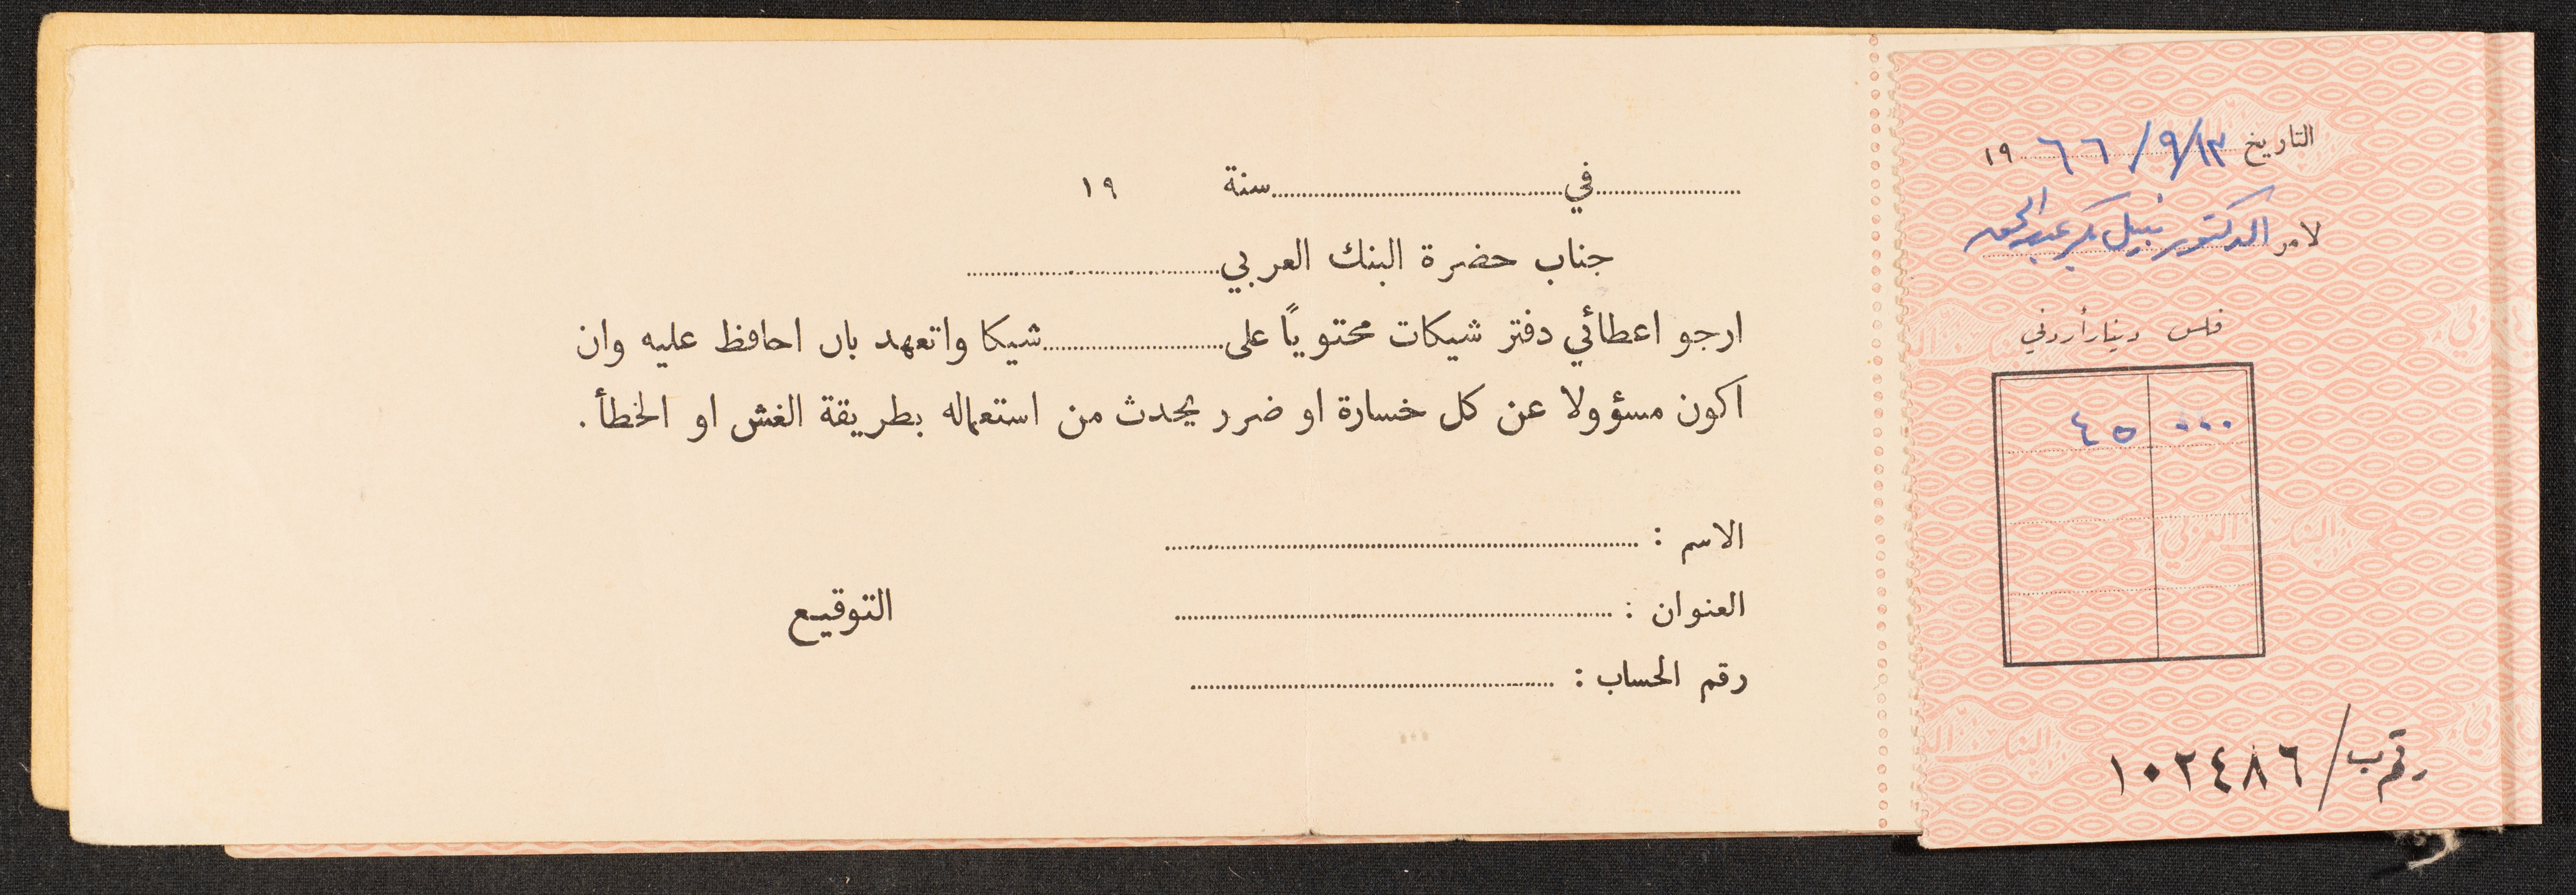 التاريخ ١٣/٩/٦٦ ١٩
لامر الدكتور نبيل بكر عبد الحق
فلس دينار أردني
٠٠٠ ٤٥
البنك العربي
رقم ب/ ١٠٢٤٨٦
................في................سنة ١٩
جناب حضرة البنك العربي................
ارجو اعطائي دفتر شيكات محتويًا على................شيكا واتعهد بان احافظ عليه وان
اكون مسؤولا عن كل خسارة او ضرر يحدث من استعماله بطريقة الغش او الخطأ .
الاسم : ................
العنوان : ................ التوقيع
رقم الحساب : ................